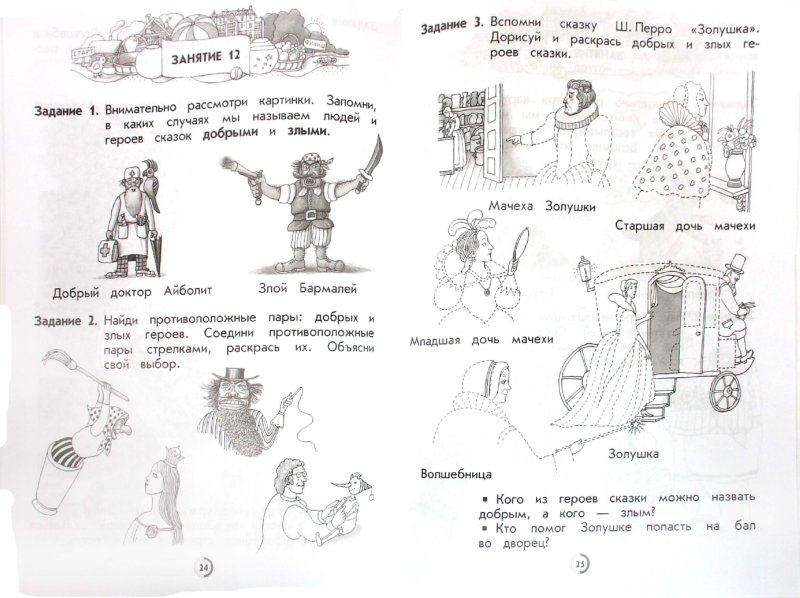 СТАРТ
ФИНИШ
ЗАНЯТИЕ 12
Задание 1. Внимательно рассмотри картинки. Запомни,
в каких случаях мы называем людей и
героев сказок добрыми и злыми.
Добрый доктор Айболит
Злой Бармалей
Задание 2. Найди противоположные пары: добрых и
злых героев. Соедини противоположные
пары стрелками, раскрась их. Объясни
свой выбор.
24
Задание 3. Вспомни сказку Ш. Перро «Золушка».
Дорисуй и раскрась добрых и злых ге-
роев сказки.
Мачеха Золушки
Старшая дочь мачехи
Младшая дочь мачехи
Золушка
Волшебница
▪ Кого из героев сказки можно назвать
добрым, а кого — злым?
▪ Кто помог Золушке попасть на бал
во дворец?
25